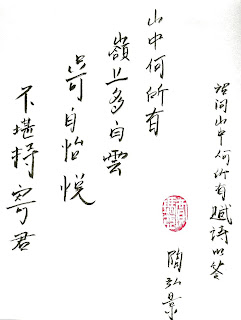 詔問山中何所有賦詩以答
陶弘景
山中何所有
嶺上多白雲
只可自怡悅
不堪持寄君